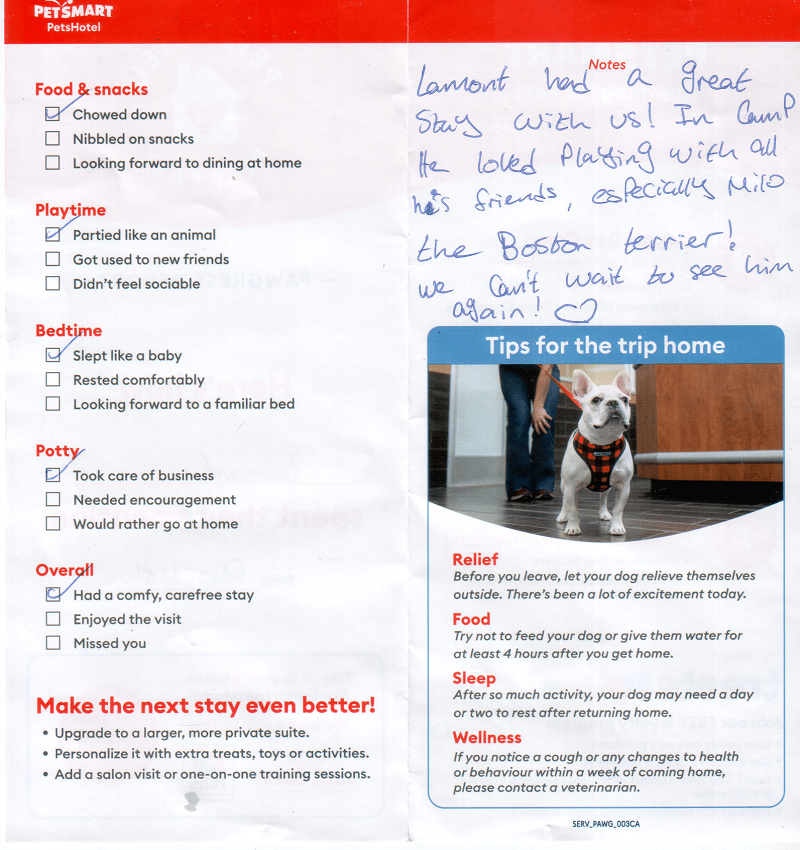 PETSMART
PetsHotel
Food & snacks
Chowed down
Nibbled on snacks
Looking forward to dining at home
Playtime
Partied like an animal
Got used to new friends
Didn't feel sociable
Bedtime
Slept like a baby
Rested comfortably
Looking forward to a familiar bed
Potty
Took care of business
Needed encouragement
Would rather go at home
Overall
Had a comfy, carefree stay
Enjoyed the visit
Missed you
Make the next stay even better!
• Upgrade to a larger, more private suite.
• Personalize it with extra treats, toys or activities.
• Add a salon visit or one-on-one training sessions.
Notes
Lamont had a great
Stay with us! In Camp
He loved Playing with all
his friends, especially Milo
the Boston terrier!
we can't wait to see him
again! ♡
Tips for the trip home
Relief
Before you leave, let your dog relieve themselves
outside. There's been a lot of excitement today.
Food
Try not to feed your dog or give them water for
at least 4 hours after you get home.
Sleep
After so much activity, your dog may need a day
or two to rest after returning home.
Wellness
If you notice a cough or any changes to health
or behaviour within a week of coming home,
please contact a veterinarian.
SERV_PAWG_003CA